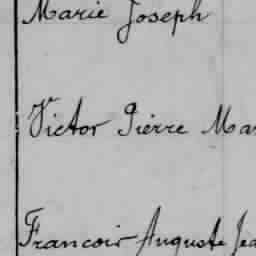 Marie Joseph
Victor Pierre Mar
Francois Auguste Jea